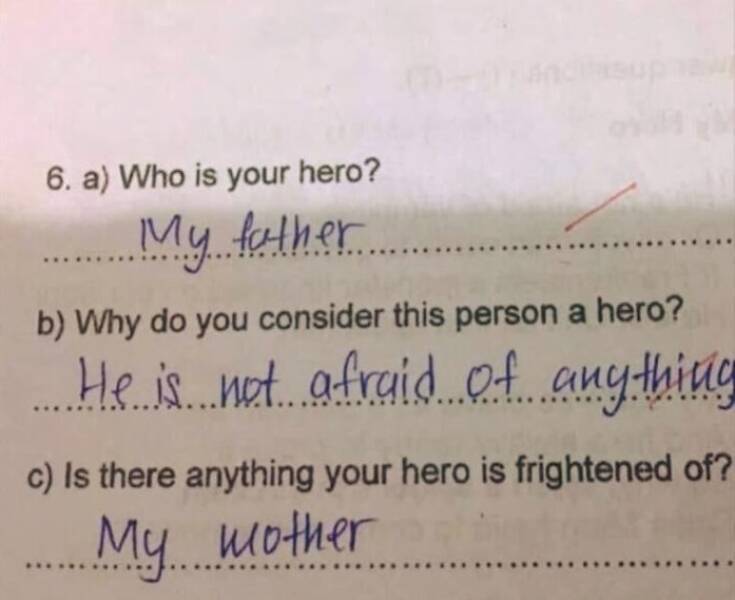 6. a) Who is your hero?
My father
b) Why do you consider this person a hero?
He is not afraid of anything
c) Is there anything your hero is frightened of?
My mother